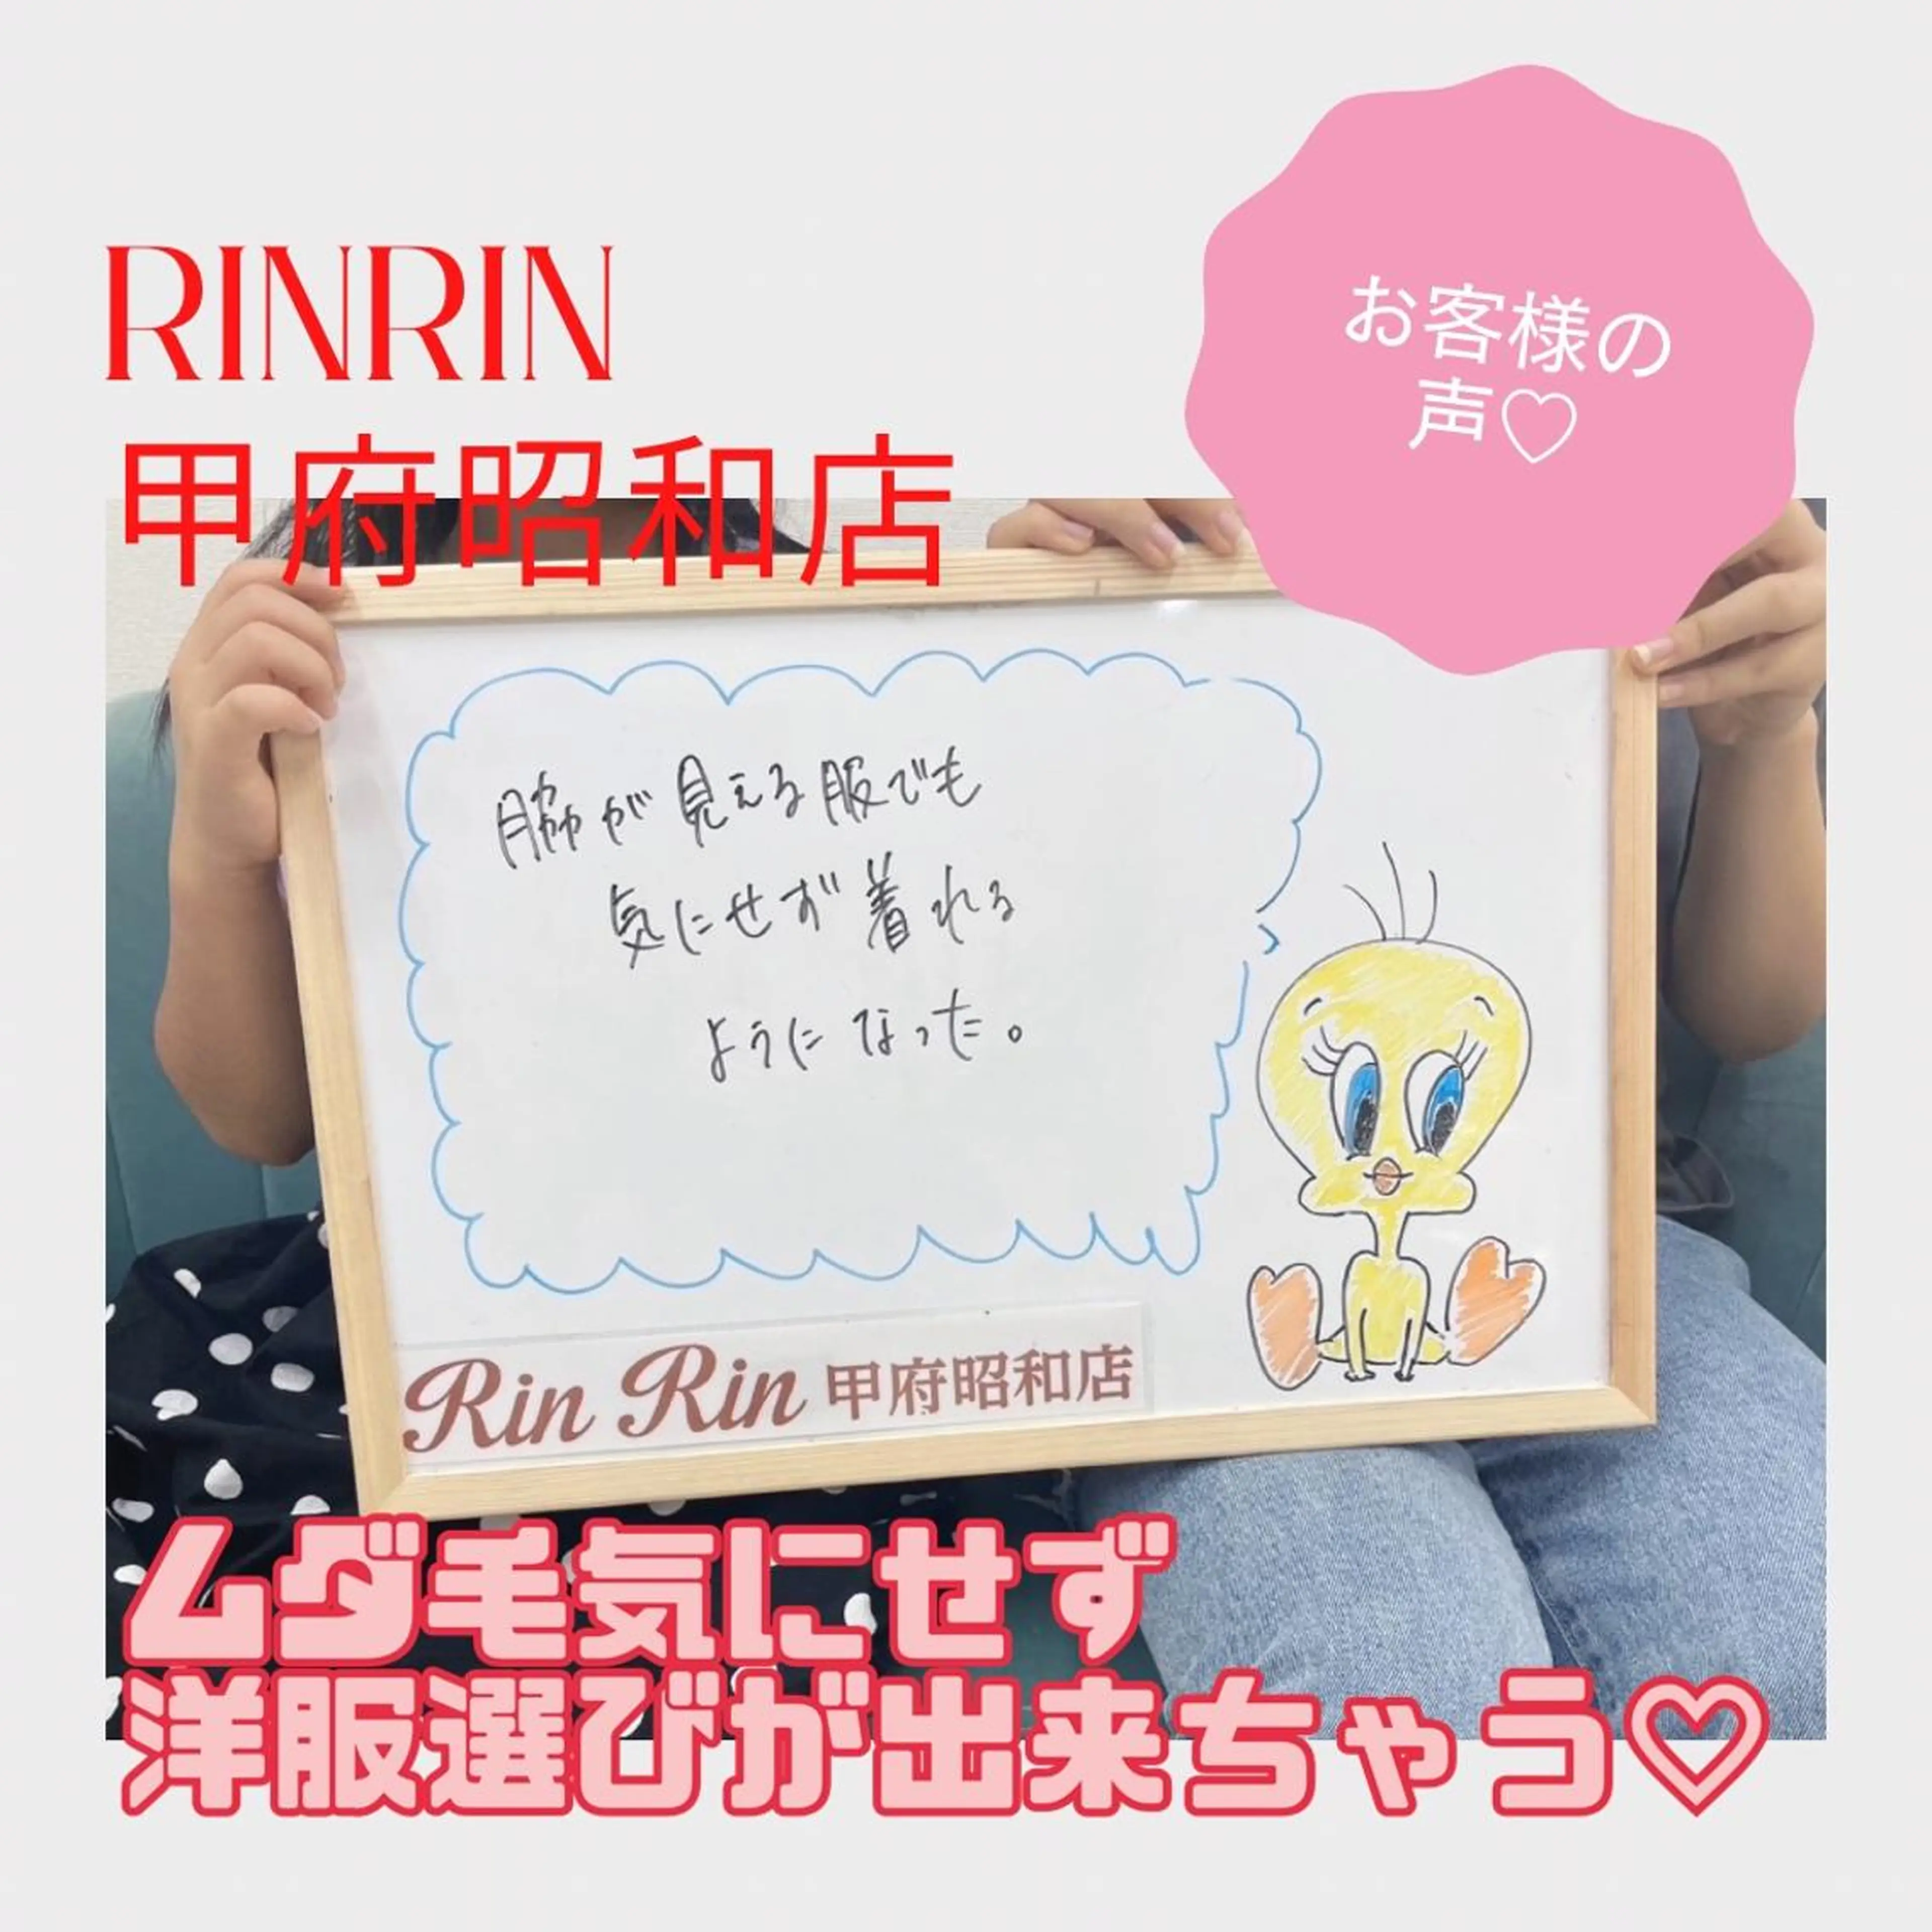 RINRIN
甲府昭和店
お客様の
声♡
脇が見える服でも
気にせず着れる
ようになった。
Rin Rin 甲府昭和店
ムダ毛気にせず
洋服選びが出来ちゃう♡